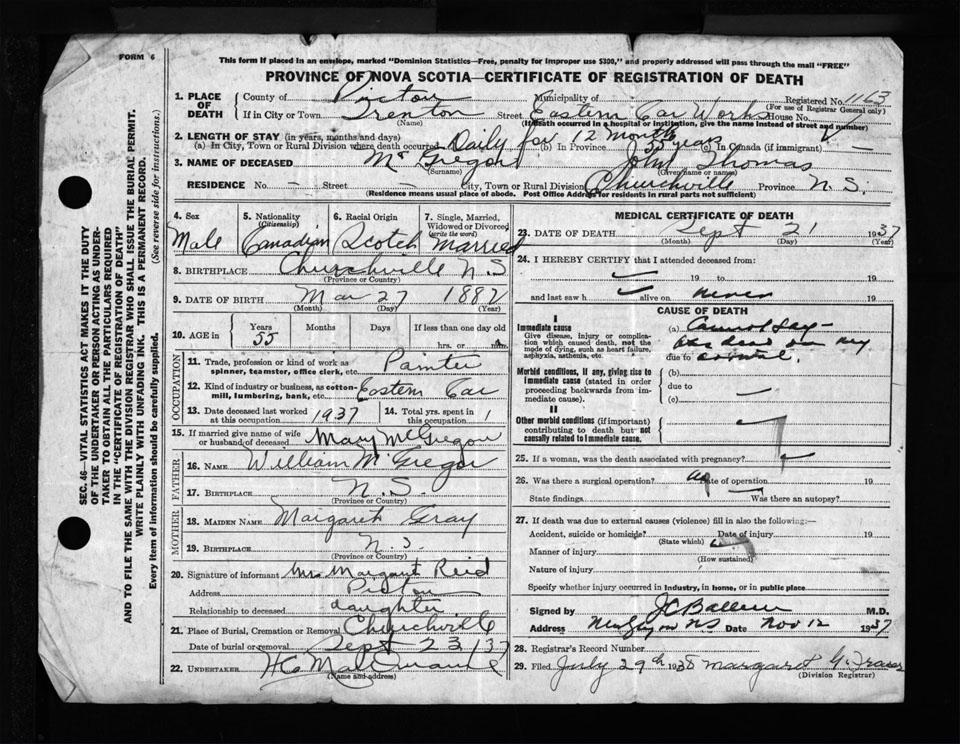 FORM 6
This form if placed in an envelope, marked "Dominion Statistics—Free, penalty for improper use $300," and properly addressed will pass through the mail "FREE"
PROVINCE OF NOVA SCOTIA—CERTIFICATE OF REGISTRATION OF DEATH
1. PLACE OF DEATH
County of Pictou Municipality of Registered No. 1163
(For use of Registrar General only)
If in City or Town Trenton Street Eastern Car Works House No.
(Name) (If death occurred in a hospital or institution, give the name instead of street and number)
2. LENGTH OF STAY (in years, months and days)
(a) In City, Town or Rural Division where death occurred Daily for 12 months (b) In Province 55 years (c) In Canada (if immigrant) —
3. NAME OF DECEASED McGregor John Thomas
(Surname) (Given name or names)
RESIDENCE No. — Street City, Town or Rural Division Churchville Province N. S.
(Residence means usual place of abode. Post Office Address for residents in rural parts not sufficient)
4. Sex 5. Nationality (Citizenship) 6. Racial Origin 7. Single, Married, Widowed or Divorced (write the word)
Male Canadian Scotch Married
8. BIRTHPLACE Churchville N. S
(Province or Country)
9. DATE OF BIRTH Mar 27 1882
(Month) (Day) (Year)
10. AGE in Years Months Days If less than one day old
55 hrs. or min.
OCCUPATION
11. Trade, profession or kind of work as spinner, teamster, office clerk, etc. Painter
12. Kind of industry or business, as cotton-mill, lumbering, bank, etc. Eastern Car
13. Date deceased last worked at this occupation 1937 14. Total yrs. spent in this occupation 1
15. If married give name of wife or husband of deceased Mary McGregor
FATHER
16. NAME William McGregor
17. BIRTHPLACE N. S.
(Province or Country)
MOTHER
18. MAIDEN NAME Margaret Gray
19. BIRTHPLACE N. S.
(Province or Country)
20. Signature of informant Mrs Margaret Reid
Address Pictou
Relationship to deceased daughter
21. Place of Burial, Cremation or Removal Churchville
Date of burial or removal Sept 23, 37
22. UNDERTAKER
(Name and address)
MEDICAL CERTIFICATE OF DEATH
23. DATE OF DEATH Sept 21 1937
(Month) (Day) (Year)
24. I HEREBY CERTIFY that I attended deceased from:
19 to 19
and last saw h alive on never 19
CAUSE OF DEATH
I
Immediate cause
Give disease, injury or complication which caused death, not the mode of dying, such as heart failure, asphyxia, asthenia, etc.
(a) Cannot say —
was dead on my
due to arrival.
Morbid conditions, if any, giving rise to immediate cause (stated in order proceeding backwards from immediate cause).
(b)
due to
(c)
II
Other morbid conditions (if important) contributing to death but not causally related to immediate cause.
25. If a woman, was the death associated with pregnancy?
26. Was there a surgical operation? Date of operation 19
State findings Was there an autopsy?
27. If death was due to external causes (violence) fill in also the following:—
Accident, suicide or homicide? Date of injury 19
(State which)
Manner of injury
(How sustained)
Nature of injury
Specify whether injury occurred in industry, in home, or in public place
Signed by M.D.
Address New Glasgow NS Date Nov 12 1937
28. Registrar's Record Number
29. Filed July 29th 1938 Margaret G. Fraser
(Division Registrar)
SEC. 46—VITAL STATISTICS ACT MAKES IT THE DUTY
OF THE UNDERTAKER OR PERSON ACTING AS UNDER-
TAKER TO OBTAIN ALL THE PARTICULARS REQUIRED
IN THE "CERTIFICATE OF REGISTRATION OF DEATH"
AND TO FILE THE SAME WITH THE DIVISION REGISTRAR WHO SHALL ISSUE THE BURIAL PERMIT.
WRITE PLAINLY WITH UNFADING INK. THIS IS A PERMANENT RECORD.
Every item of information should be carefully supplied. (See reverse side for instructions.)